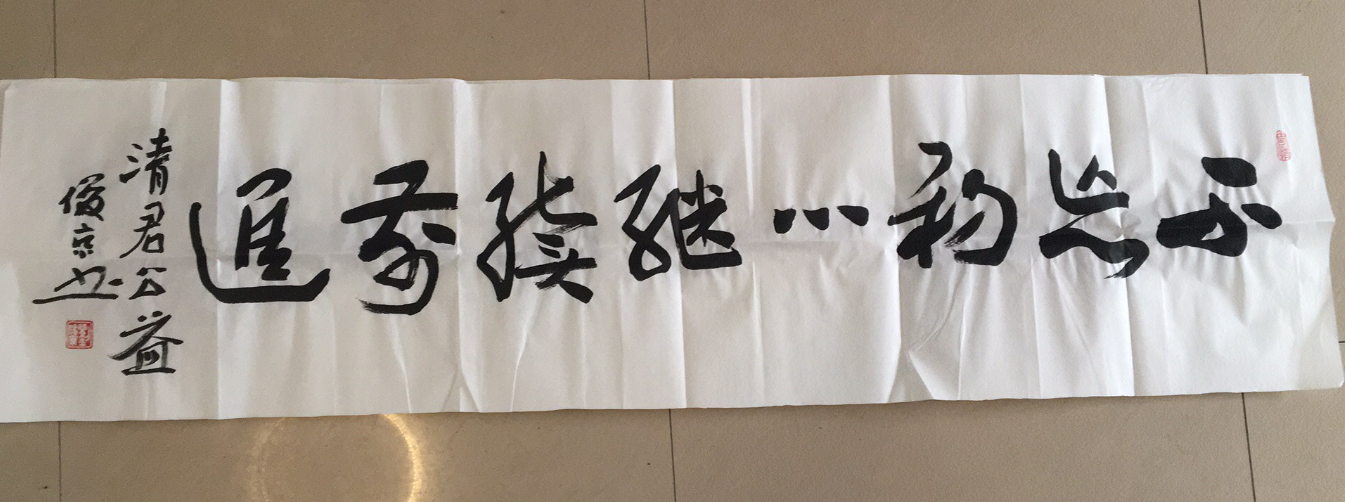 不忘初心继续前進
清君公益
俊京书